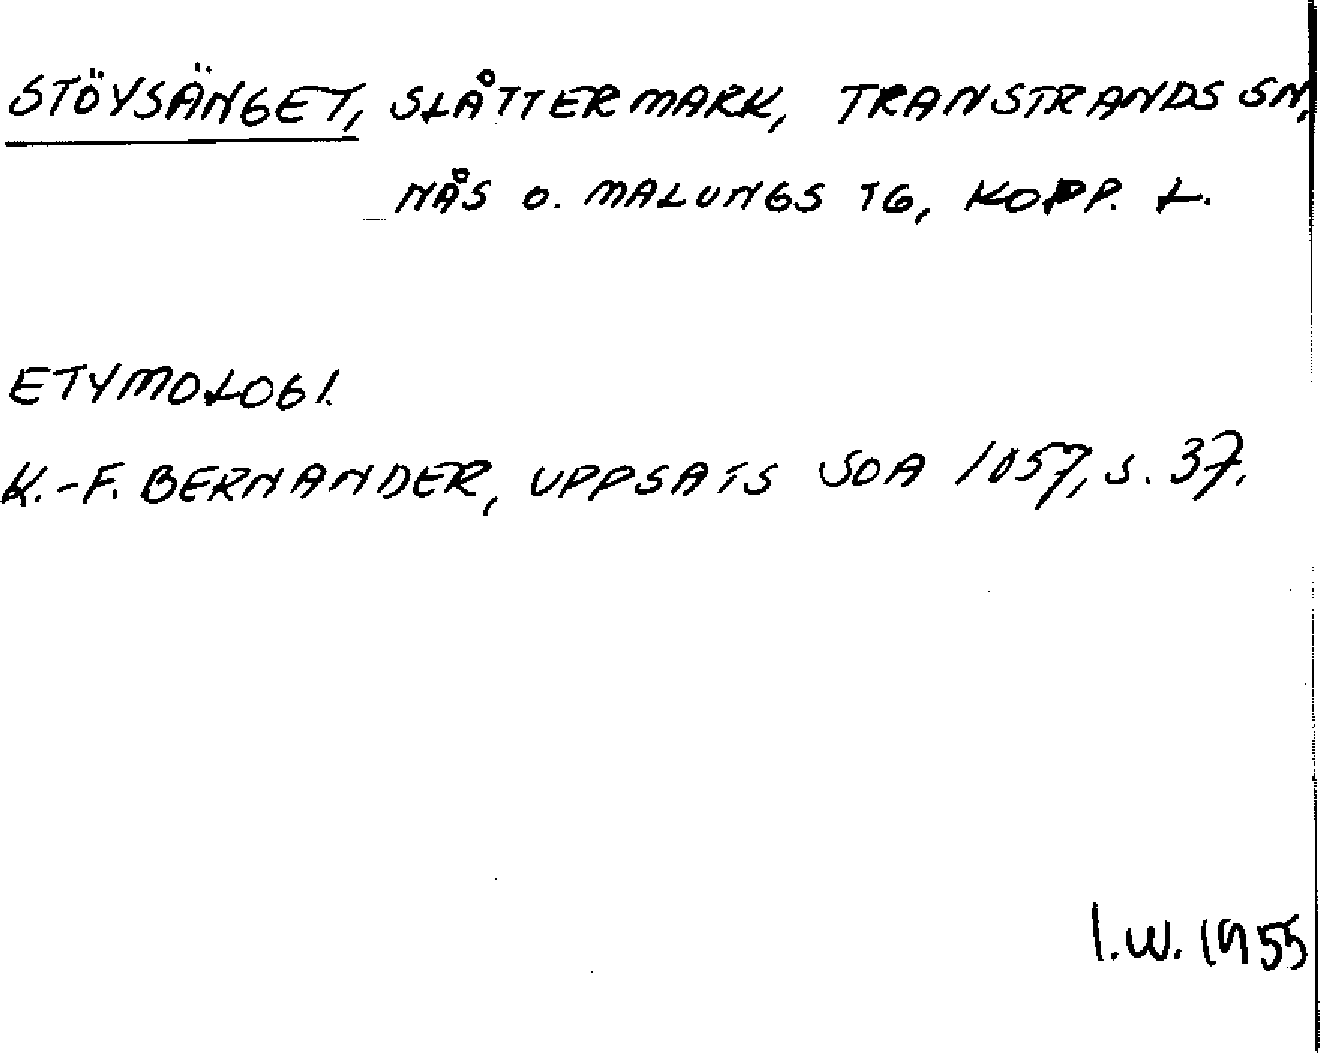 STÖYSÄNGET, SLÅTTERMARK, TRANSTRANDS SN,
NÅS O. MALUNGS TG, KOPP. L.
ETYMOLOGI.
K.-F. BERNANDER, UPPSATS SOA 1057, S. 37.
I.W. 1955